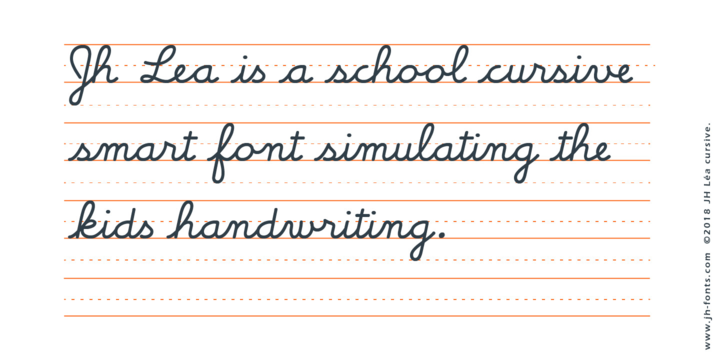 Jh Lea is a school cursive
smart font simulating the
kids handwriting.
www.jh-fonts.com ©2018 JH Léa cursive.